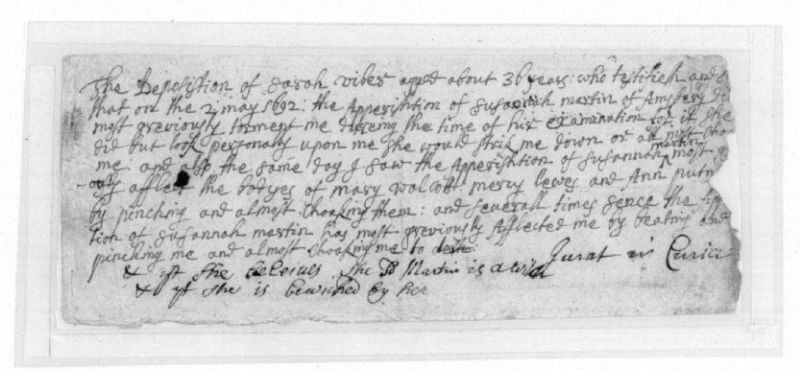 The Deposistion of Sarah vibes agged about 36 years: who testifieth and
that on the 2: may 1692: the Apperishtion of Susannah martin of Amsbery did
most greviously torment me dureing the time of hir examination for if she
did but look personaly upon me she would strik me down or allmost Choak
me and also the same day I saw the Apperishtion of Susannah martin most
ously afflect the bodyes of mary walcott mercy lewes and Ann putn
by pinching and almost Choaking them: and severall times sence the App
tion of Susannah martin has most greviously afflected me by beating and
punching me and almost Choaking me to death
& yt she beleeues she sd Martin is a witch Jurat in Curia
& yt she is bewiched by her